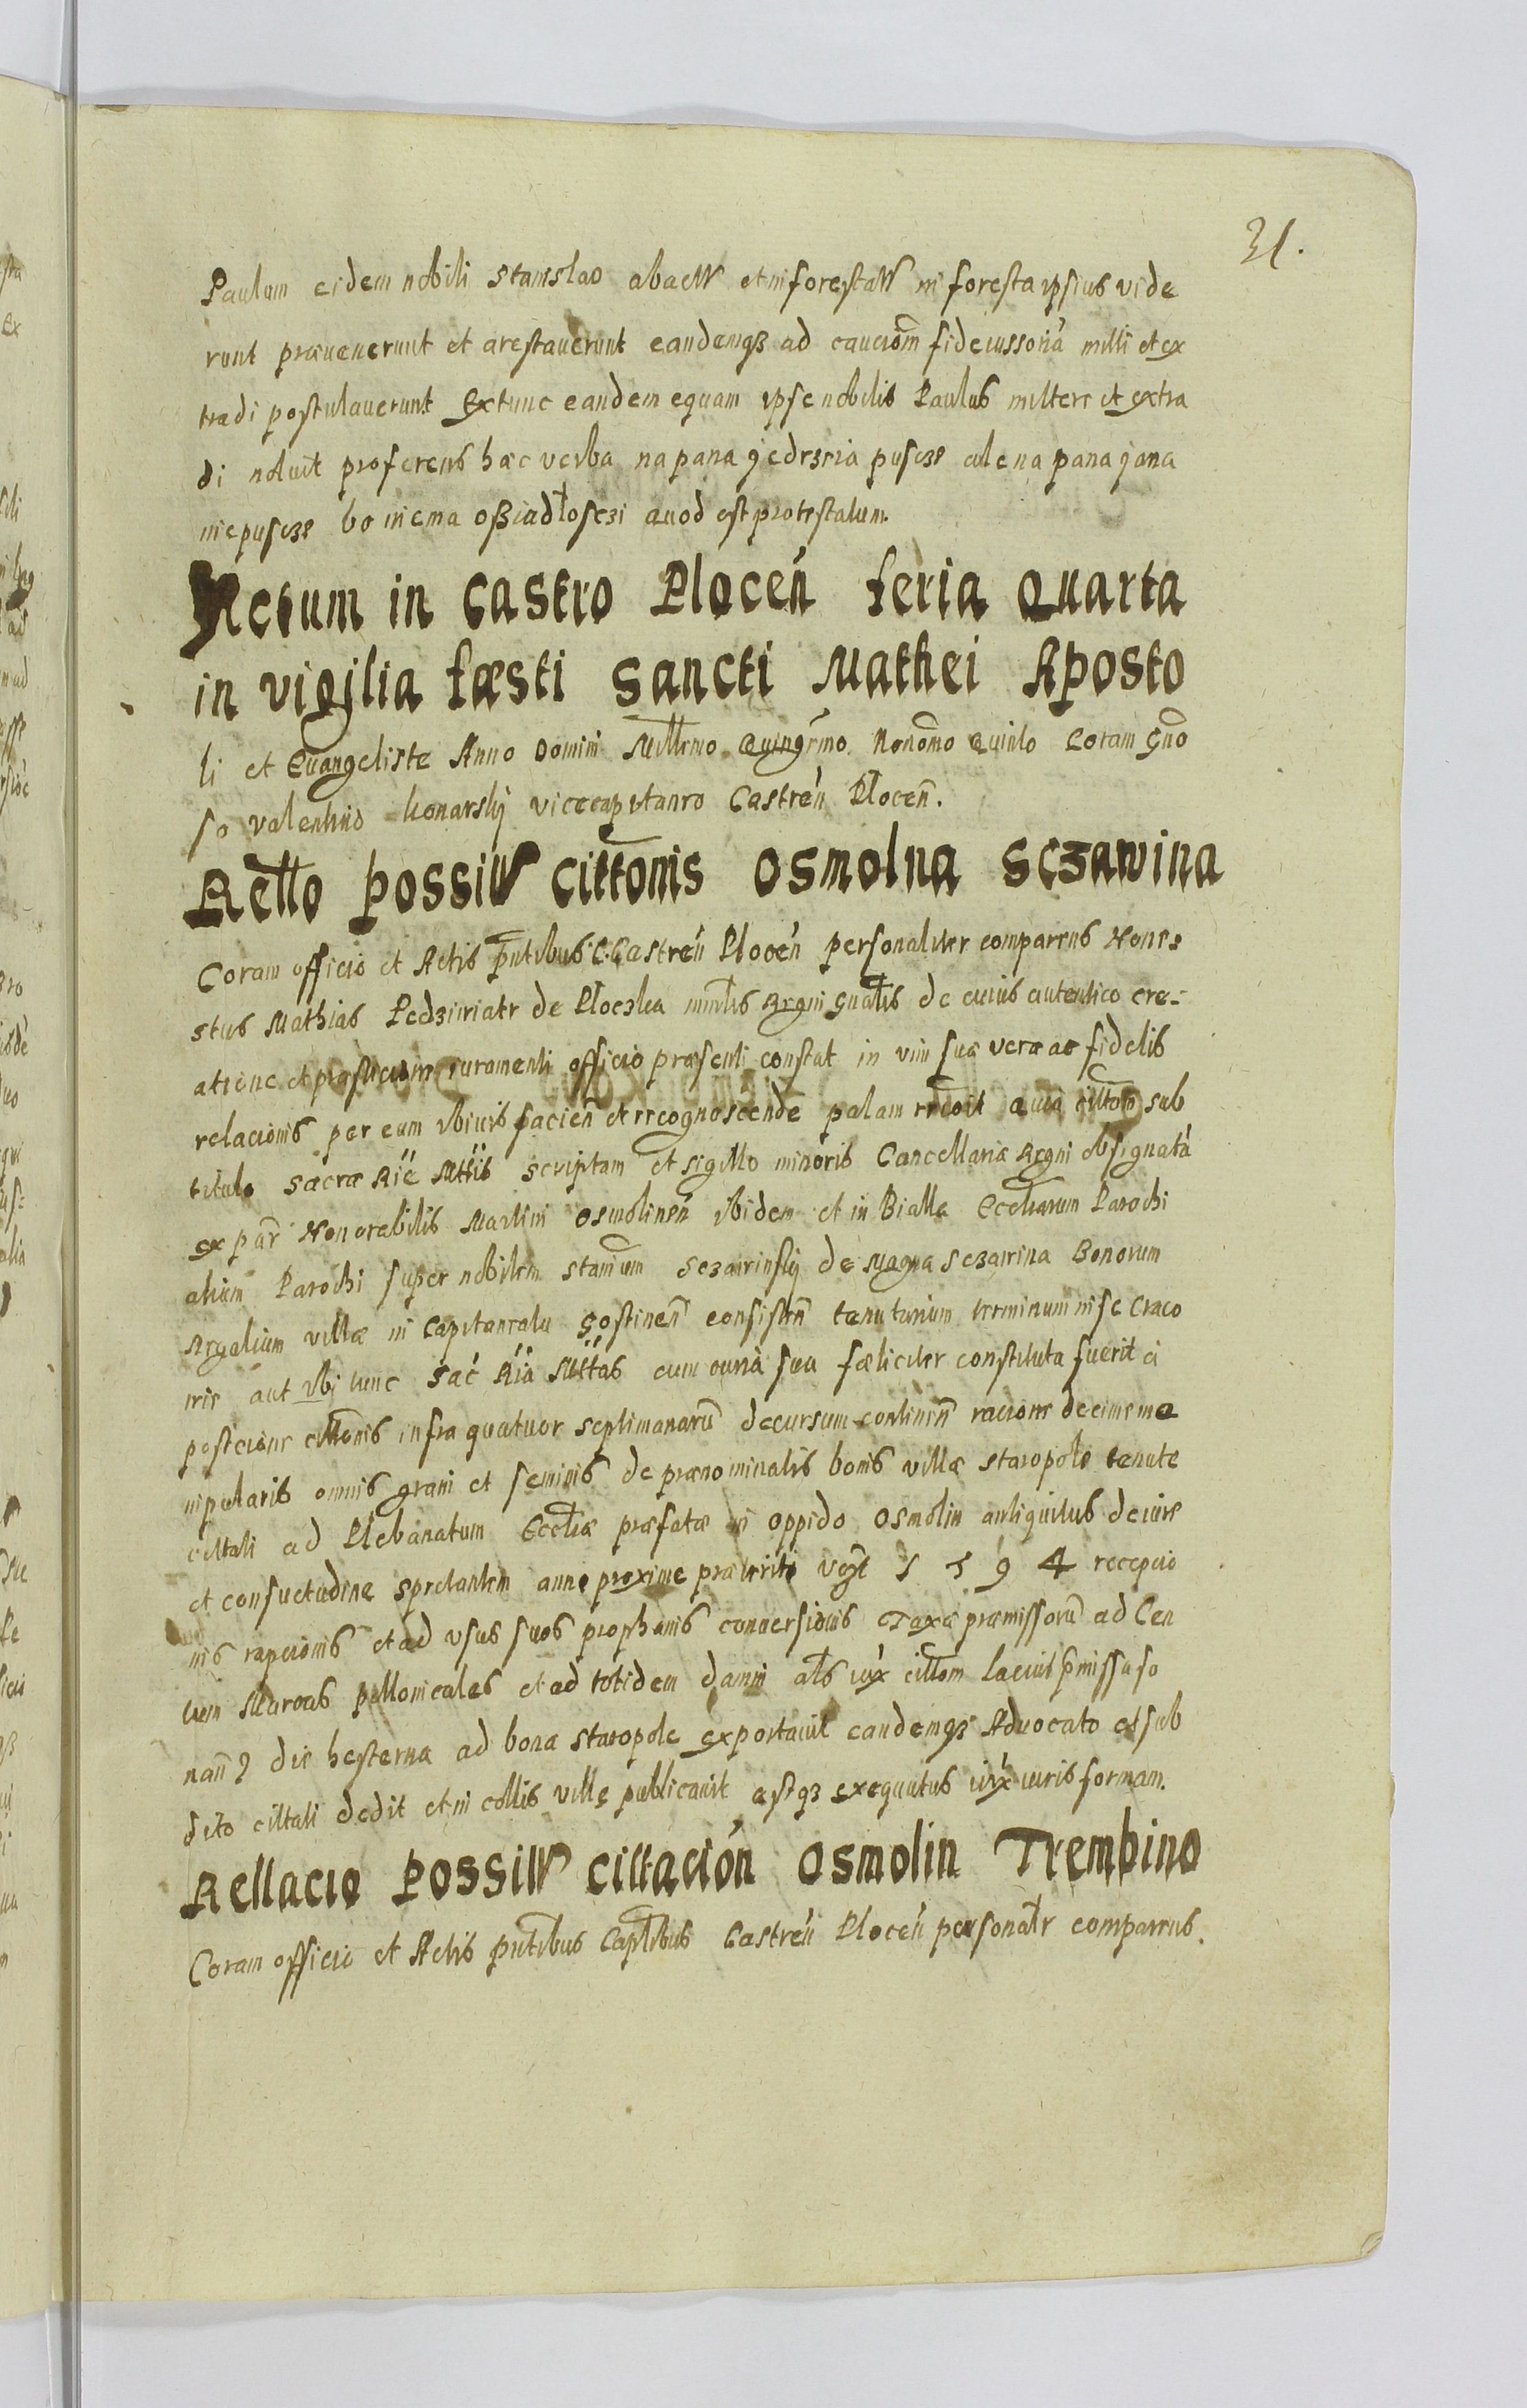 31.
Paulum eidem nobili Stanislao abactt et in forestatt in foresta ipsius vide
runt praeuenerunt et arestauerunt eandemqз ad cauciōm fideiussoriā mitti et ex
tradi postulauerunt Extunc eandem equam ipse nobilis Paulus mittere et extra
di noluit proferens haec verba na pana jedrzeia puscze ale na pana jana
nie puscze bo nie ma ossiadłosczi quod est protestatum.
Actum in Castro Plocen̄ feria Quarta
in vigilia faesti Sancti Mathei Aposto
li et Euangeliste Anno Domini Millimo Quingēmo Nonōmo Quinto Coram Gn̄o
so Valentino Konarskj vicecapitaneo Castren̄ Plocen̄.
Rello possitt cittōnis Osmolna Sczawina
Coram officio et Actis pn̄tibus C. Castren̄ Plocen̄ personaliter comparens Hones
stus Mathias Pedziwiatr de Ploczka mīnlis Regni Gnālis de cuius autentico cre-
atione et praesticione iuramenti officio praesenti constat in vim suae verae ac fidelis
relacionis per eum vbiuis facien̄ et recognoscende palam recōit quia cittōm sub
titulo Sacrae Rie Mttis scriptam et sigillo minoris Cancellariae Regni obsignatā
ex par̄ Honorabilis Martini Osmolinen̄ ibidem et in Bialla Eccliarum Parochi
alium Parochi super nobilem Stanīum Sczawinskj de Magna Sczawina Bonorum
Regalium villae in Capitaneatu Gostinen̄ consisten̄ tenutarium terminum in se Craco
uie aut vbj tunc Sac̄ Ria Mttas cum curia sua faeliciter constituta fuerit a
posicione cittōnis infra quatuor septimanarū decursum continen̄ racione decime ma
nipularis omnis grani et seminis de praenominatis bonis villae Staropole tenute
cittati ad Plebanatum Eccliae praefatae in oppido Osmolin antiquitus de iure
et consuetudine spectantem anno proxime praeteriti vegt 1 5 9 4 recepcio
nis rapcionis et ad vsus suos prophanis conuersionis Taxae praemissorū ad Cen
tum Marcas pollonicales et ad totidem damni als iux cittōm latius pmissa so
nan̄ die hesterna ad bona Staropole exportauit eandemqз Aduocato et sub
dito cittati dedit et in collis ville publicauit estqз exequutus iux iuris formam.
Rellacio possitt cittacion̄ Osmolin Trembino
Coram officio et Actis pn̄tibus Captlibus Castren̄ Plocen̄ personalr comparens.